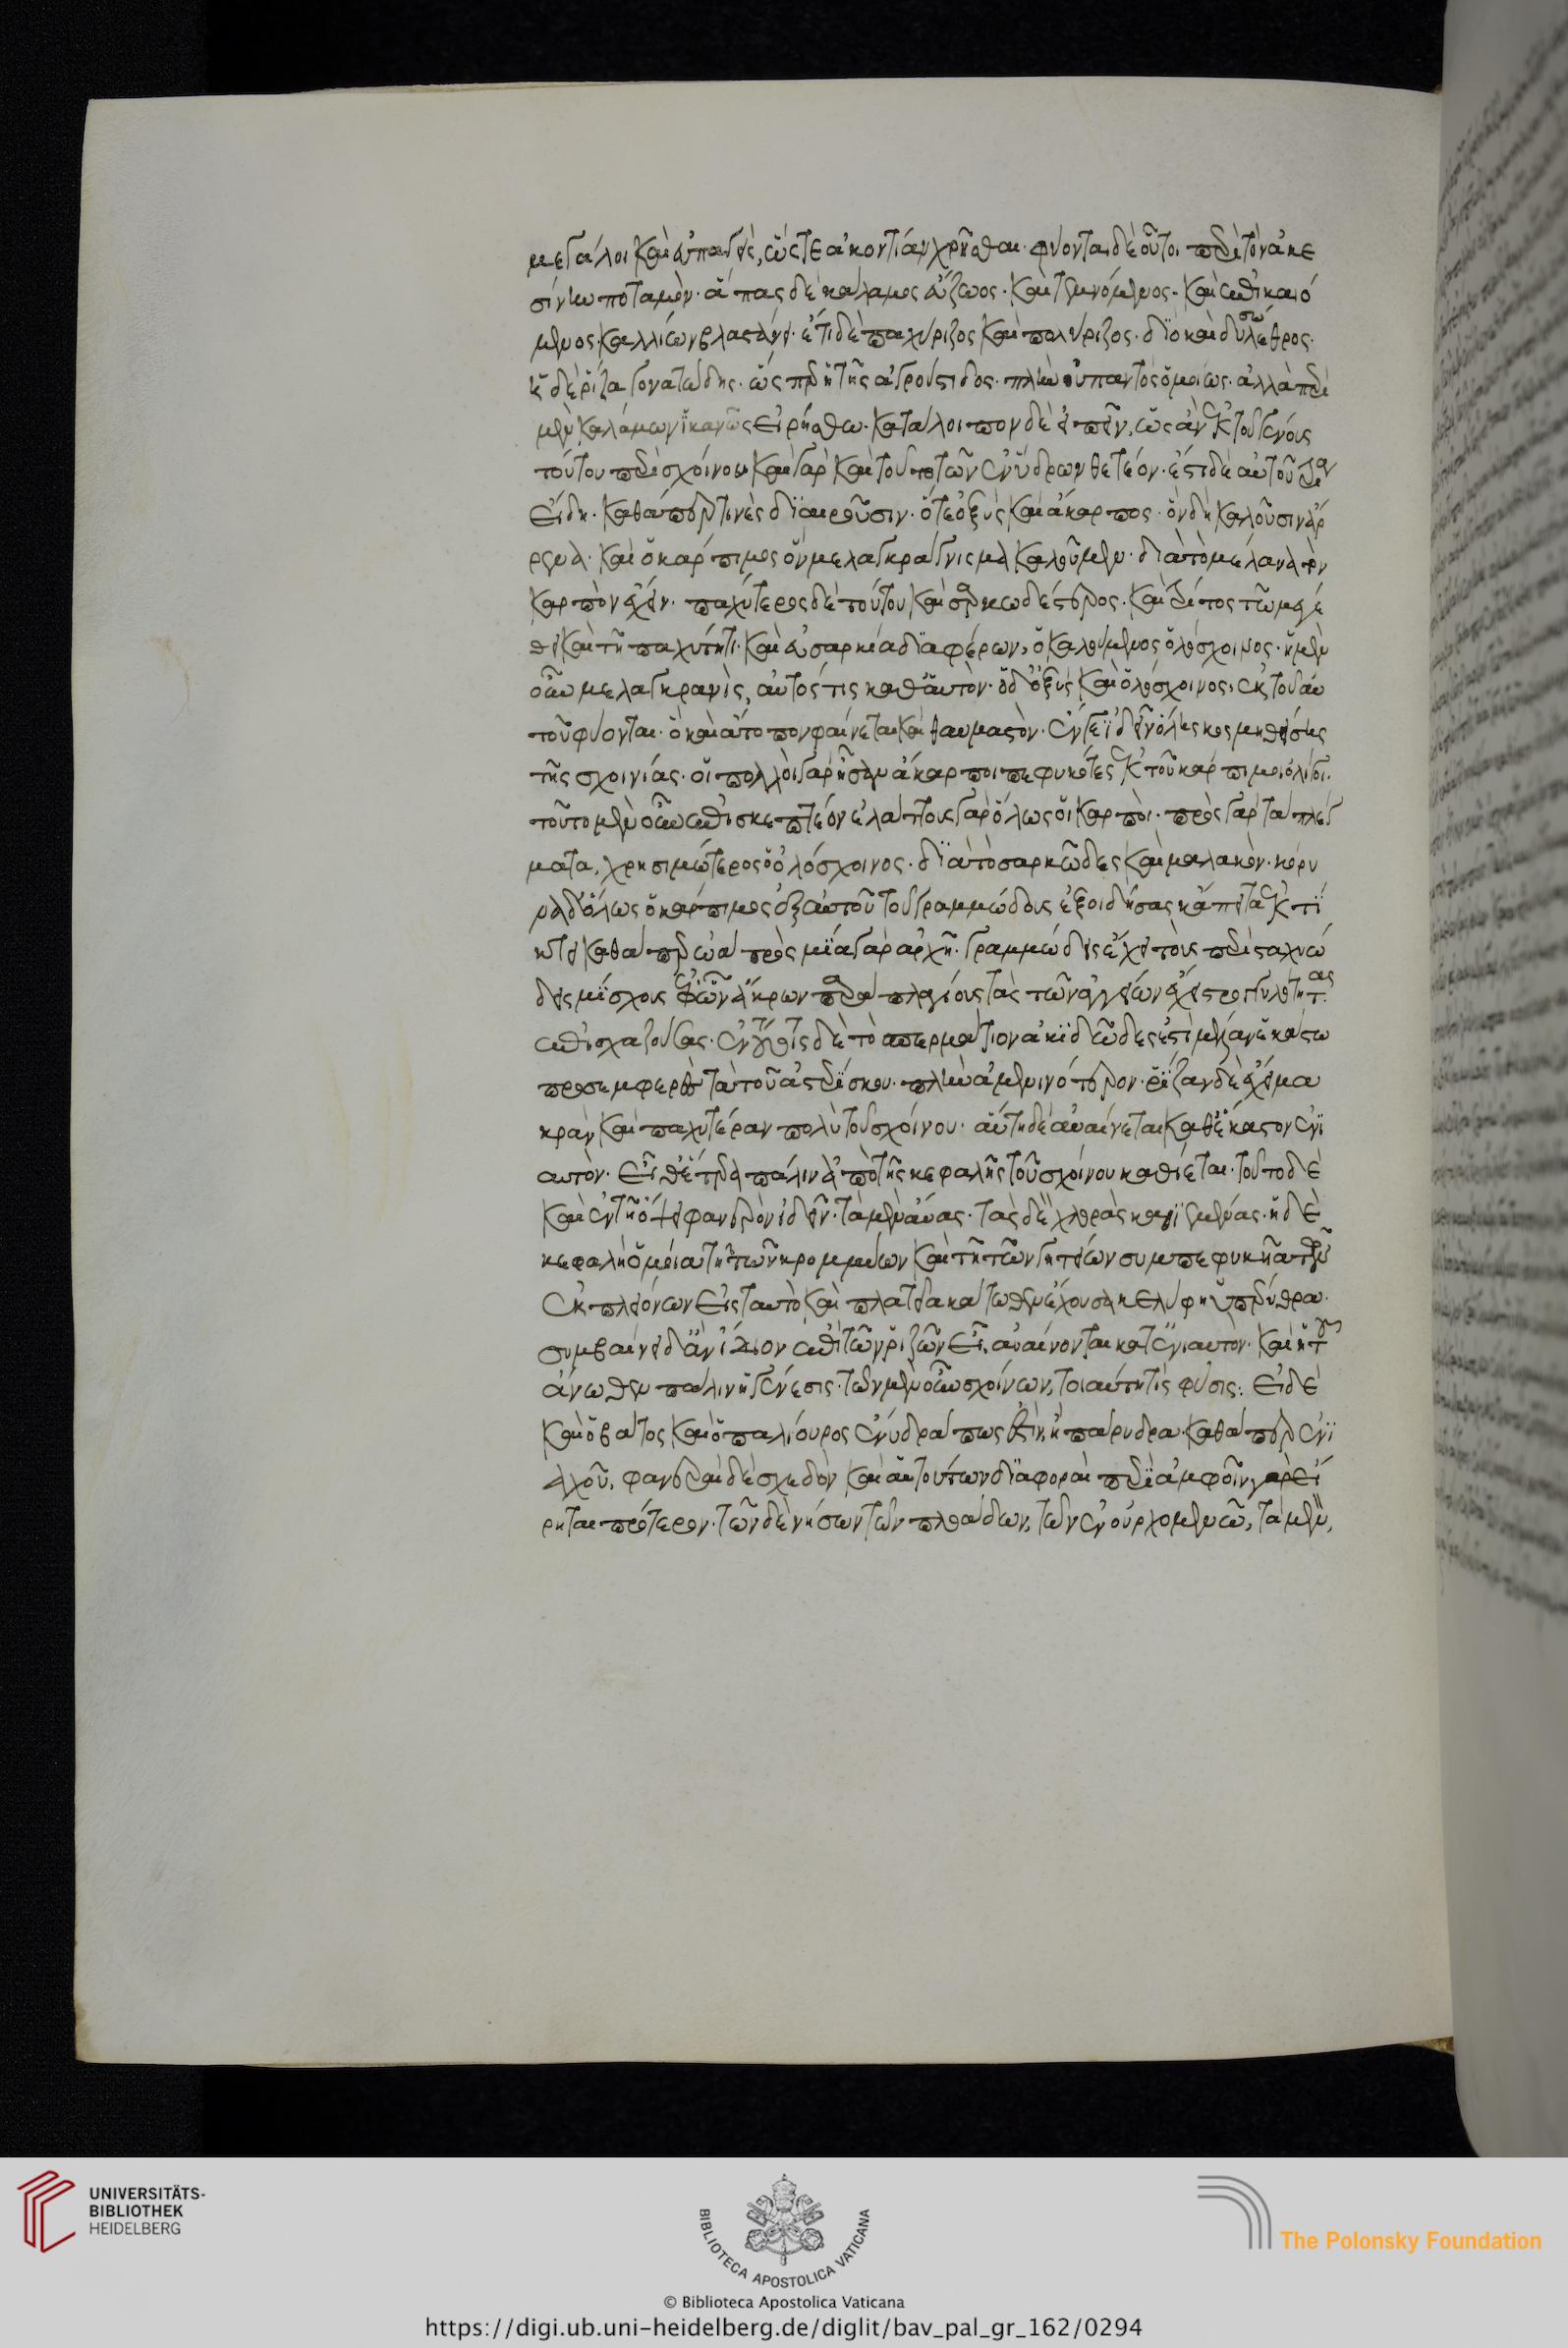 μεγάλοι καὶ εὐπαγεῖς, ὥστε ἀκοντίαν χρῆσθαι· φύονται δὲ οὗτοι περὶ τὸν ἀκε
σίνην ποταμὸν· ἅπας δὲ κάλαμος εὔζωος· καὶ τεμνόμενος· καὶ ἐπικαιό
μενος καλλίων βλαστάνει· ἔτι δὲ παχύριζος καὶ πολύριζος· διὸ καὶ δυσώλεθρος·
ἡ δὲ ῥίζα γονατώδης· ὥσπερ ἡ τῆς ἀγρούστιδος· πλὴν οὐ παντὸς ὁμοίως· ἀλλὰ περὶ
μὲν καλάμων ἱκανῶς εἰρήσθω· κατάλοιπον δὲ εἰπεῖν, ὡς ἂν ἐκ τοῦ γένους
τούτου περὶ σχοίνου καὶ γὰρ καὶ τοῦτο τῶν ἐνύδρων θετέον· ἔστι δὲ αὐτοῦ τρία
εἴδη· καθάπερ τινὲς διαιροῦσιν· ὅτε ὀξὺς καὶ ἄκαρπος· ὃν δὴ καλοῦσιν ἄρ
ρενα· καὶ ὁ κάρπιμος ὃν μελαγκραγνισμα καλοῦμεν· διὰ τὸ μέλανα τὸν
καρπὸν ἔχειν· παχύτερος δὲ τούτου καὶ σαρκωδέστερος· καὶ τρίτος τῶ μεγέ
θει καὶ τῆ παχύτητι· καὶ εὐσαρκία διαφέρων, ὁ καλούμενος ὁλόσχοινος· ἡ μὲν
οὖν μελαγκρανὶς, αὐτός τις καθ' αὑτὸν· ὁ δ' ὀξὺς καὶ ὁλόσχοινος, ἐκ τοῦ αὐ
τοῦ φύονται· ὃ καὶ ἄτοπον φαίνεται καὶ θαυμαστὸν· ἦν γε ἰδεῖν ὅλης κοςμηθείσης
τῆς σχοινίας· οἱ πολλοὶ γὰρ ἦσαν ἄκαρποι πεφυκότες ἐκ τοῦ καρπίμοι ὀλίγοι·
τοῦτο μὲν οὖν ἐπισκεπτέον ἐλάττους γὰρ ὅλως οἱ καρποὶ· πρὸς γὰρ τὰ πλέγ
ματα, χρησιμώτερος ὁ ὁλόσχοινος· διὰ τὸ σαρκῶδες καὶ μαλακὸν· κορυ
να δ' ὅλως ὁ κάρπιμος ἐξ αὐτοῦ τοῦ γραμμώδους ἐξοιδήσας κἄπειτα ἐκτί
κτει καθάπερ ὠὰ πρὸς μία γὰρ ἀρχῆ· γραμμώδει ἔχει τοὺς περὶ σταχυώ
δεις μίσχους ἐφ' ὧν ἄκρων παραπλαγίους τὰς τῶν ἀγγείων ἔχει στρογγυλότητας
ἐπισχαζούσας· ἐν ταύταις δὲ τὸ σπερμάτιον ἀκιδῶδες ἐστὶ μέλαν ἑκάστω
προσεμφερὲς τὰ τοῦ ἀστερίσκου· πλὴν ἀμενινότερον· ῥίζαν δὲ ἔχει μα
κρὰν καὶ παχυτέραν πολὺ τοῦ σχοίνου· αὕτη δὲ αὐαίνεται καθ' ἕκαστον ἐνι
αυτὸν· εἶθ' ἑτέρα πάλιν ἀπὸ τῆς κεφαλῆς τοῦ σχοίνου καθίεται· τοῦτο δὲ
καὶ ἐν τῆ ὄψει φανερὸν ἰδεῖν· τὰ μὲν αὔας· τὰς δὲ χλωρὰς καθιεμένας· ἡ δὲ
κεφαλὴ ὁμοία τῆ τῶν κρομμύων καὶ τῆ τῶν γητείων συμπεφυκῆα πῶς
ἐκ πλειόνων εἰς ταυτὸ καὶ πλατεῖα κάτωθεν ἔχουσα κελύφη ὑπέρυθρα·
συμβαίνει δ' ἂν ἴδιον ἐπὶ τῶν ῥιζῶν εἰ, αὐαίνονται κατ' ἐνιαυτὸν· καὶ ἡ τῶν
ἄνωθεν πάλιν ἡ γένεσις· τῶν μὲν οὖν σχοίνων, τοιαύτη τις φύσις· εἰ δὲ
καὶ ὁ βάτος καὶ ὁ παλίουρος ἔνυδρά πως ἐστὶν, ἢ πάρυδρα· καθάπερ ἐνι
αχοῦ, φανεραὶ δὲ σχεδὸν καὶ αἱ τούτων διαφοραὶ περὶ ἀμφοῖν γὰρ εἴ
ρηται πρότερον· τῶν δὲ νήσων τῶν πλοάδων, τῶν ἐν ὀύρχομενῶ, τὰ μὲν,
UNIVERSITÄTS-
BIBLIOTHEK
HEIDELBERG
BIBLIOTECA APOSTOLICA VATICANA
The Polonsky Foundation
© Biblioteca Apostolica Vaticana
https://digi.ub.uni-heidelberg.de/diglit/bav_pal_gr_162/0294